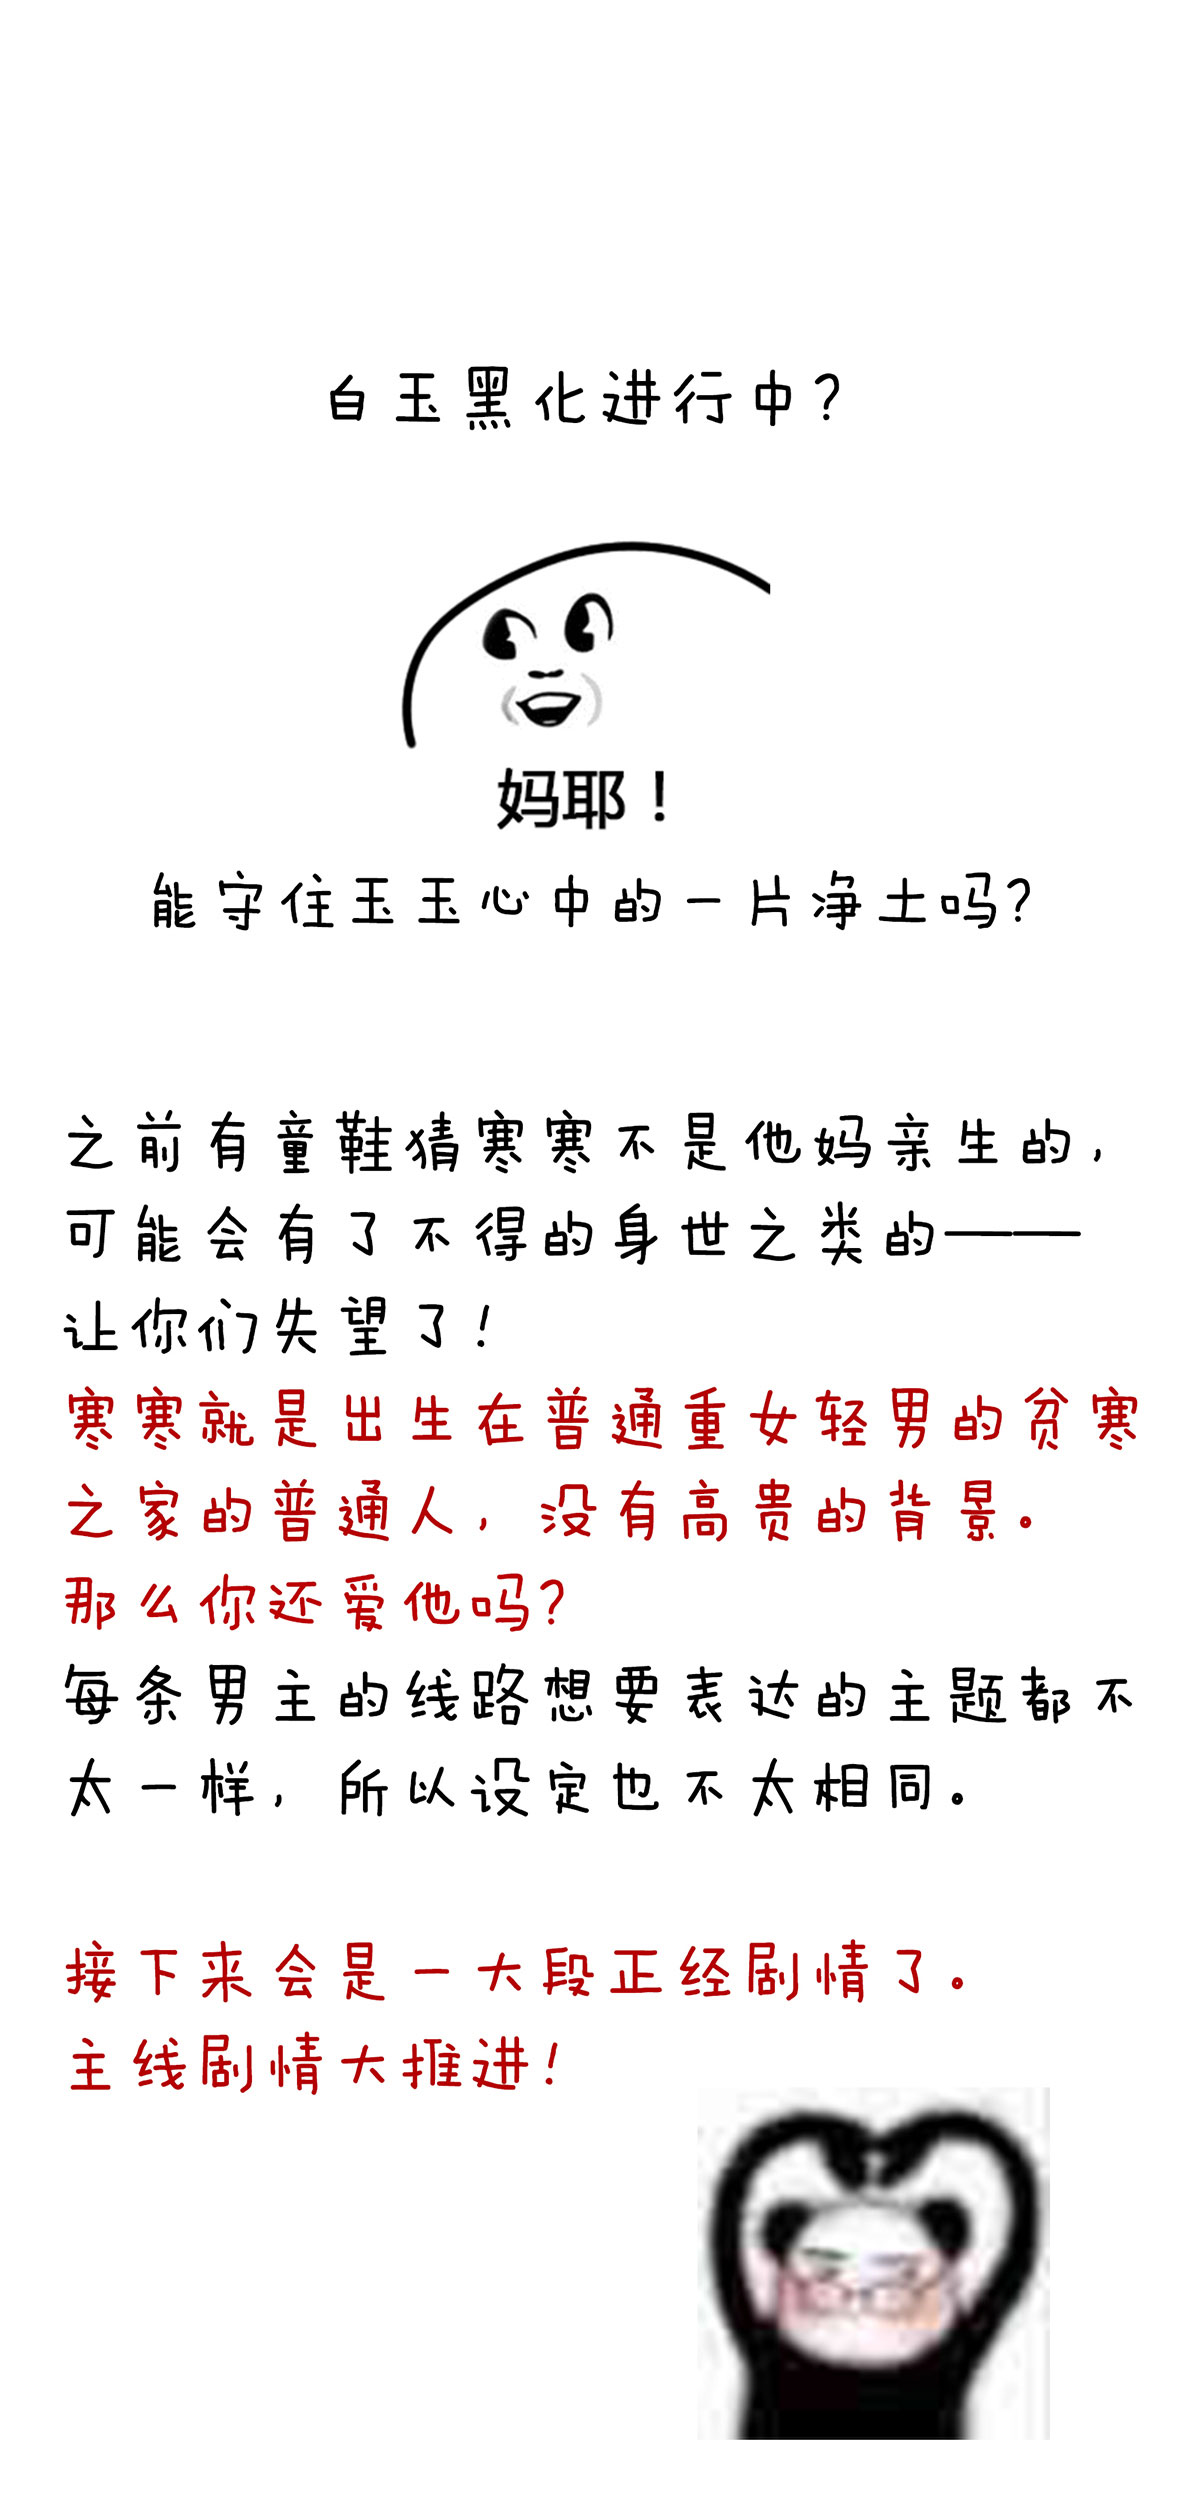 白玉黑化进行中?
妈耶！
能守住玉玉心中的一片净土吗?
之前有童鞋猜寒寒不是他妈亲生的，
可能会有了不得的身世之类的——
让你们失望了!
寒寒就是出生在普通重女轻男的贫寒
之家的普通人，没有高贵的背景。
那么你还爱他吗?
每条男主的线路想要表达的主题都不
太一样，所以设定也不太相同。
接下来会是一大段正经剧情了。
主线剧情大推进!